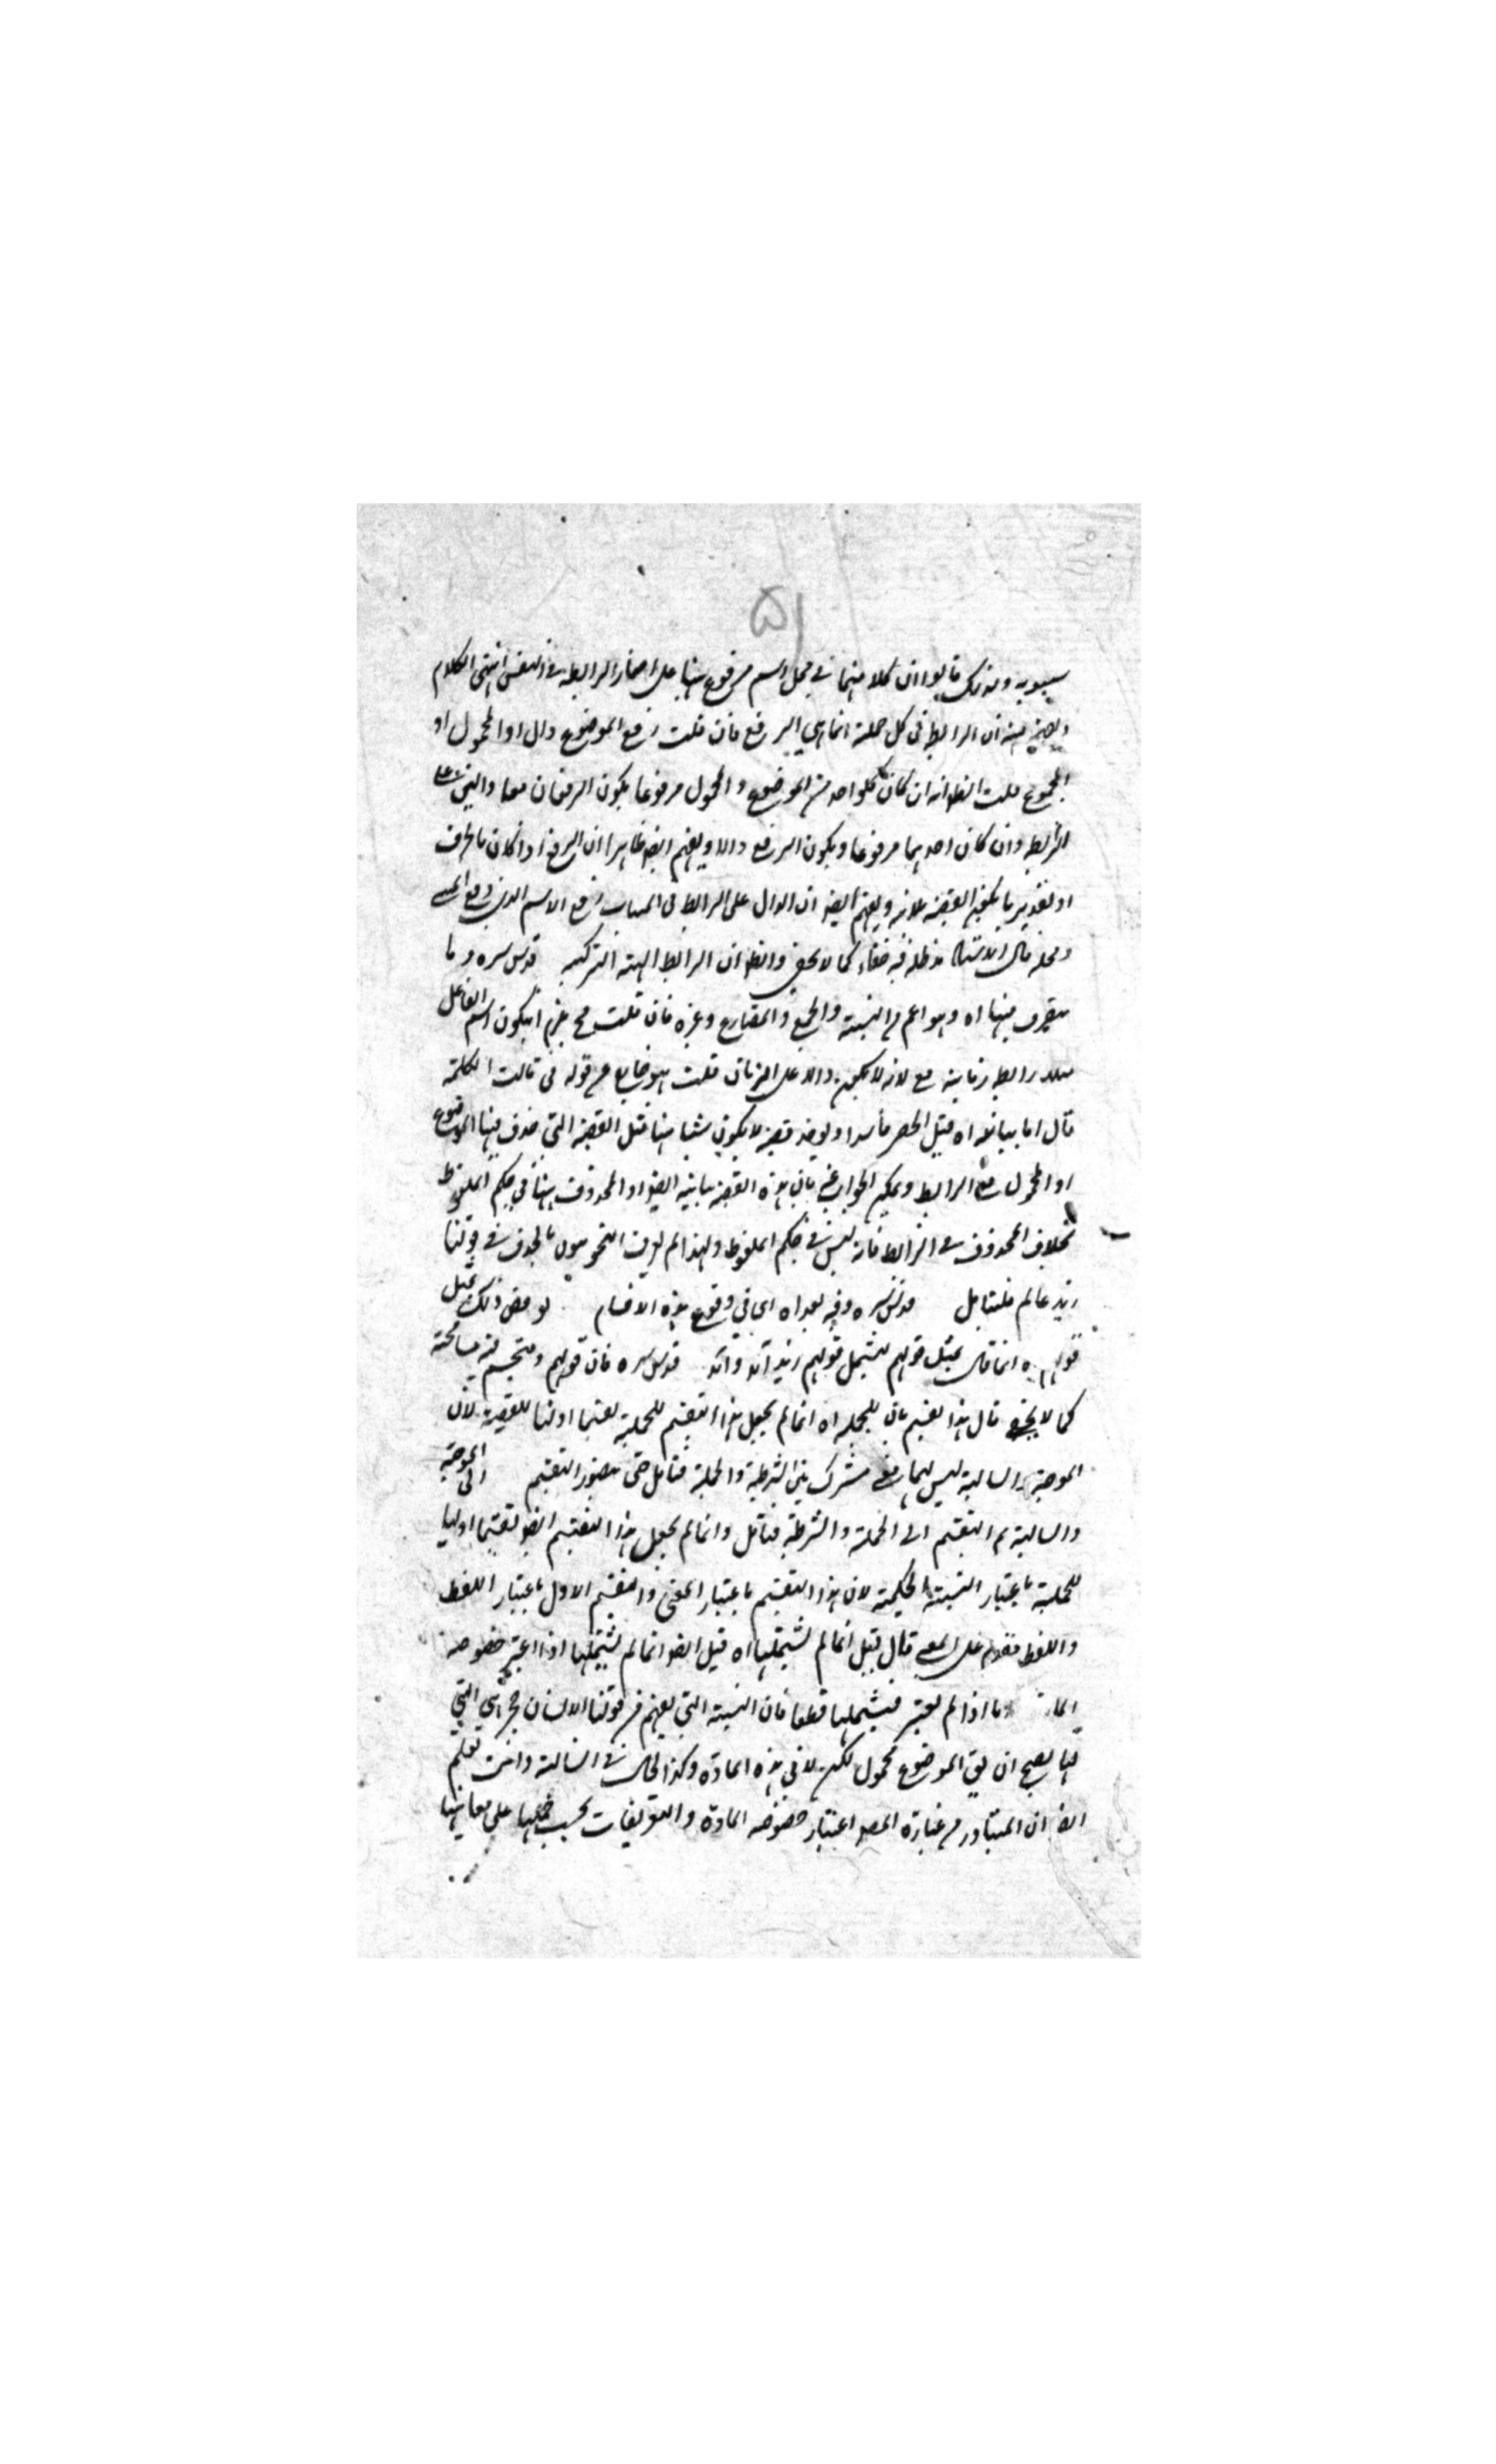 ۵۱
سيبويه ولذلك قالوا ان كلا منهما في محل اسم مرفوع بنا على اضمار الرابطة في النفس انتهى الكلام
منه ان الرابط في كل حملية انما هي الرفع فان قلت رفع الموضوع دال او المحمول او
المجموع قلت الظ انه ان كان كل واحد من الموضوع والمحمول مرفوعا يكون الرفعان معا دالين على
الرابط وان كان احدهما مرفوعا ويكون الرفع دالا ويفهم ايضا ظاهرا ان الرفع اذا كان بالحرف
او تقديريا يكون القضية ثلاثية ويفهم ايضا ان الدال على الرابط في المبنيات رفع الاسم الذي وقع المبني
في محله فيه خفاء كما لا يخفى والظ ان الرابط الهيئة التركيبية قدس سره وما
يتصرف منها اه وهو اعم من التثنية والجمع والمضارع وغيره فان قلت فح يلزم ان يكون اسم الفاعل
رابطة زمانية مع انه لا يكون دالا على الزمان قلت هو خارج من قوله في قالب الكلمة
قال اما ثنائية اه قيل الحصر فاسد اذ يوجد قضية لا يكون شيئا منهما مثل القضية التي حذف منها الموضوع
او المحمول مع الرابط ويمكن الجواب عنه بان هذه القضية ثنائية ايضا اذ المحذوف هنا في حكم الملفوظ
بخلاف المحذوف في الرابط فانه ليس في حكم الملفوظ ولهذا لم يعرف النحويون بالحذف في قولنا
زيد عالم فليتامل قدس سره وفيه بعد اه اى في وقوع هذه الاقسام لو فض ذلك بمثل
قولهم اه انما قال بمثل قولهم ليشمل قولهم زيد آمد قدس سره فان قولهم منجم فيه مسامحة
كما لا يخفى قال هذا تقسيم ثان للحملية اه انما لم يجعل هذا التقسيم للحملية تقسيما اوليا للقضية لان
الموجبة والسالبة ليس لهما معنى مشترك بين الشرطية والحملية فتامل حتى يتصور التقسيم الى الموجبة
والسالبة ثم التقسيم الى الحملية والشرطية فتامل وانما لم يجعل هذا التقسيم ايضا تقسيما اوليا
للحملية باعتبار النسبة الحكمية لان هذا التقسيم باعتبار المعنى والتقسيم الاول باعتبار اللفظ
واللفظ مقدم على المعنى قال قيل انما لم يشملها اه قيل ايضا انما لم يشملها اذا اعتبر خصوصية
المادة اما اذا لم يعتبر فيشملها قطعا فان النسبة التي يفهم من قولنا الانسان حجر هي التي
بها يصح ان يق الموضوع محمول لكن لا في هذه المادة وكذا الحال في السالبة وانت تعلم
ايضا ان المتبادر من عبارة المص اعتبار خصوصية المادة والتعريفات يجب حملها على معانيها